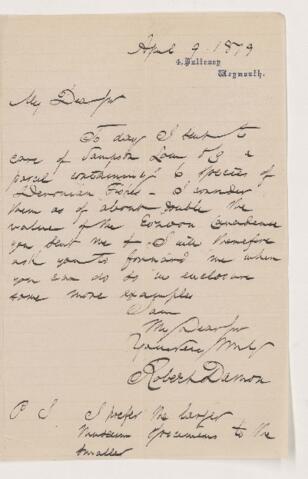 April 9. 1879
4, Pulteney
Weymouth.
My Dear Sir
To day I sent to
care of Sampson Low &Co a
parcel containing 6 species of
Devonian Fishes - I consider
them as of about double the
value of the Eozoon Canadense
you sent me & I will therefore
ask you to forward me when
you can do so in enclosure
some more examples
I am
My Dear Sir
Yours very truly
Robert Damon
P S. I prefer the larger
museum specimens to the
smaller